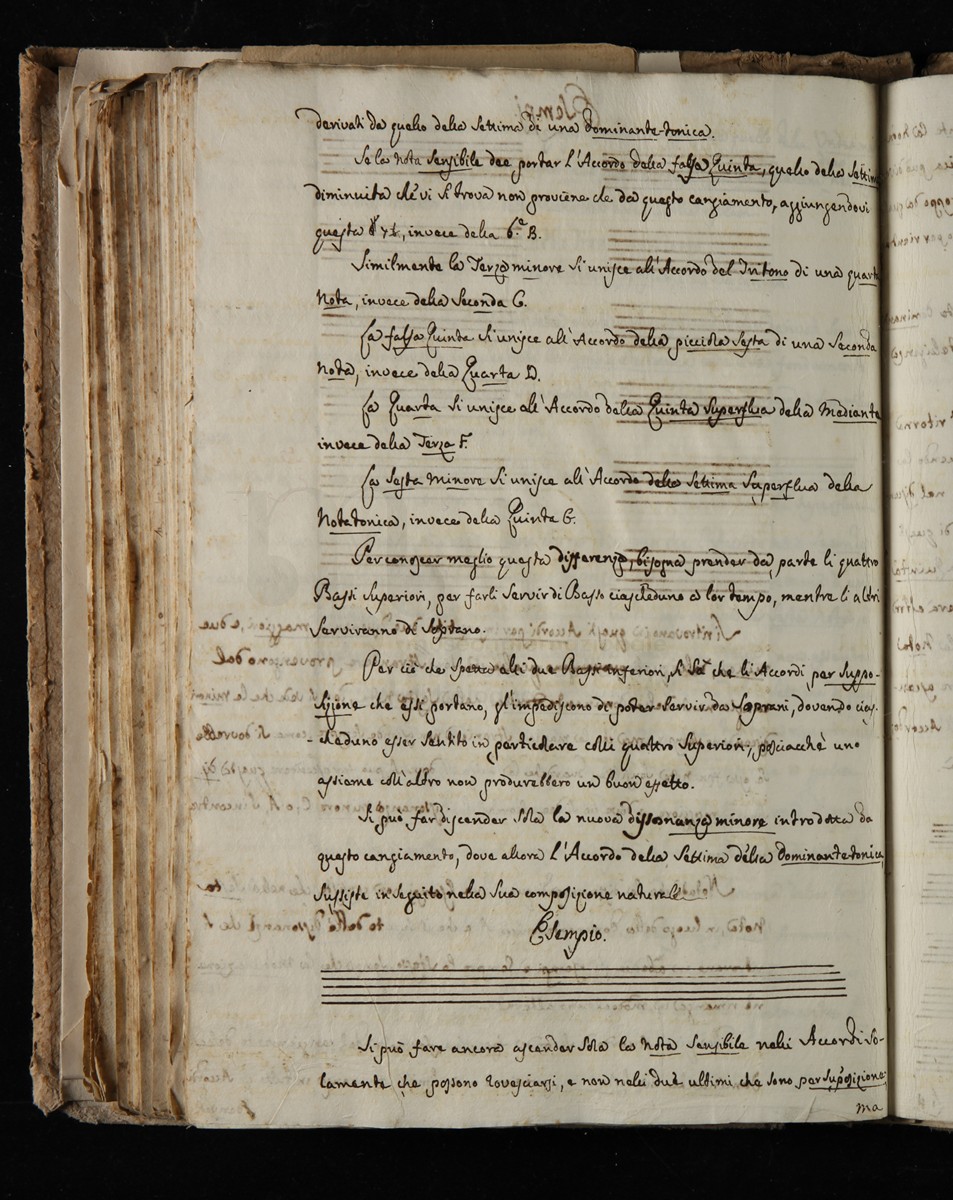 derivati da quello della Settima di una Dominante-tonica.
Se la Nota Sensibile dee portar l'Accordo della falsa Quinta, quello della Settima
diminuita che vi si trova non proviene che da questo cangiamento, aggiungendovi
questa invece della 6.ª B.
Similmente la Terza minore si unisce all'Accordo del Tritono di una quarta
Nota, invece della Seconda C.
La falsa Quinta si unisce all'Accordo della picciola Sesta di una Seconda
Nota, invece della Quarta D.
La Quarta si unisce all'Accordo della Quinta Superflua della Mediante
invece della Terza F.
La Sesta Minore si unisce all'Accordo della Settima Superflua della
Nota tonica, invece della Quinta G.
Per conoscer meglio questa differenza, bisogna prender da parte li quattro
Bassi Superiori, per farli servir di Basso ciascheduno a lor tempo, mentre li altri
serviranno di Soprano.
Per ciò che spetta alli due Bassi inferiori, si sa che li Accordi per Suppo-
sizione che essi portano, gl'impediscono di poter servir da Soprani, dovendo cias-
-cheduno esser sentito in particolare colli quattro Superiori, posciacchè uno
assieme coll'altro non produrebbero un buon effetto.
Si può far discender Sola la nuova dissonanza minore introdotta da
questo cangiamento, dove allora l'Accordo della Settima della Dominante-tonica,
sussiste in seguito nella sua composizione naturale
Esempio.
Si può fare ancora ascender Sola la Nota Sensibile nelli Accordi So-
lamente che possono rovesciarsi, e non nelli due ultimi che sono per Supposizione;
ma